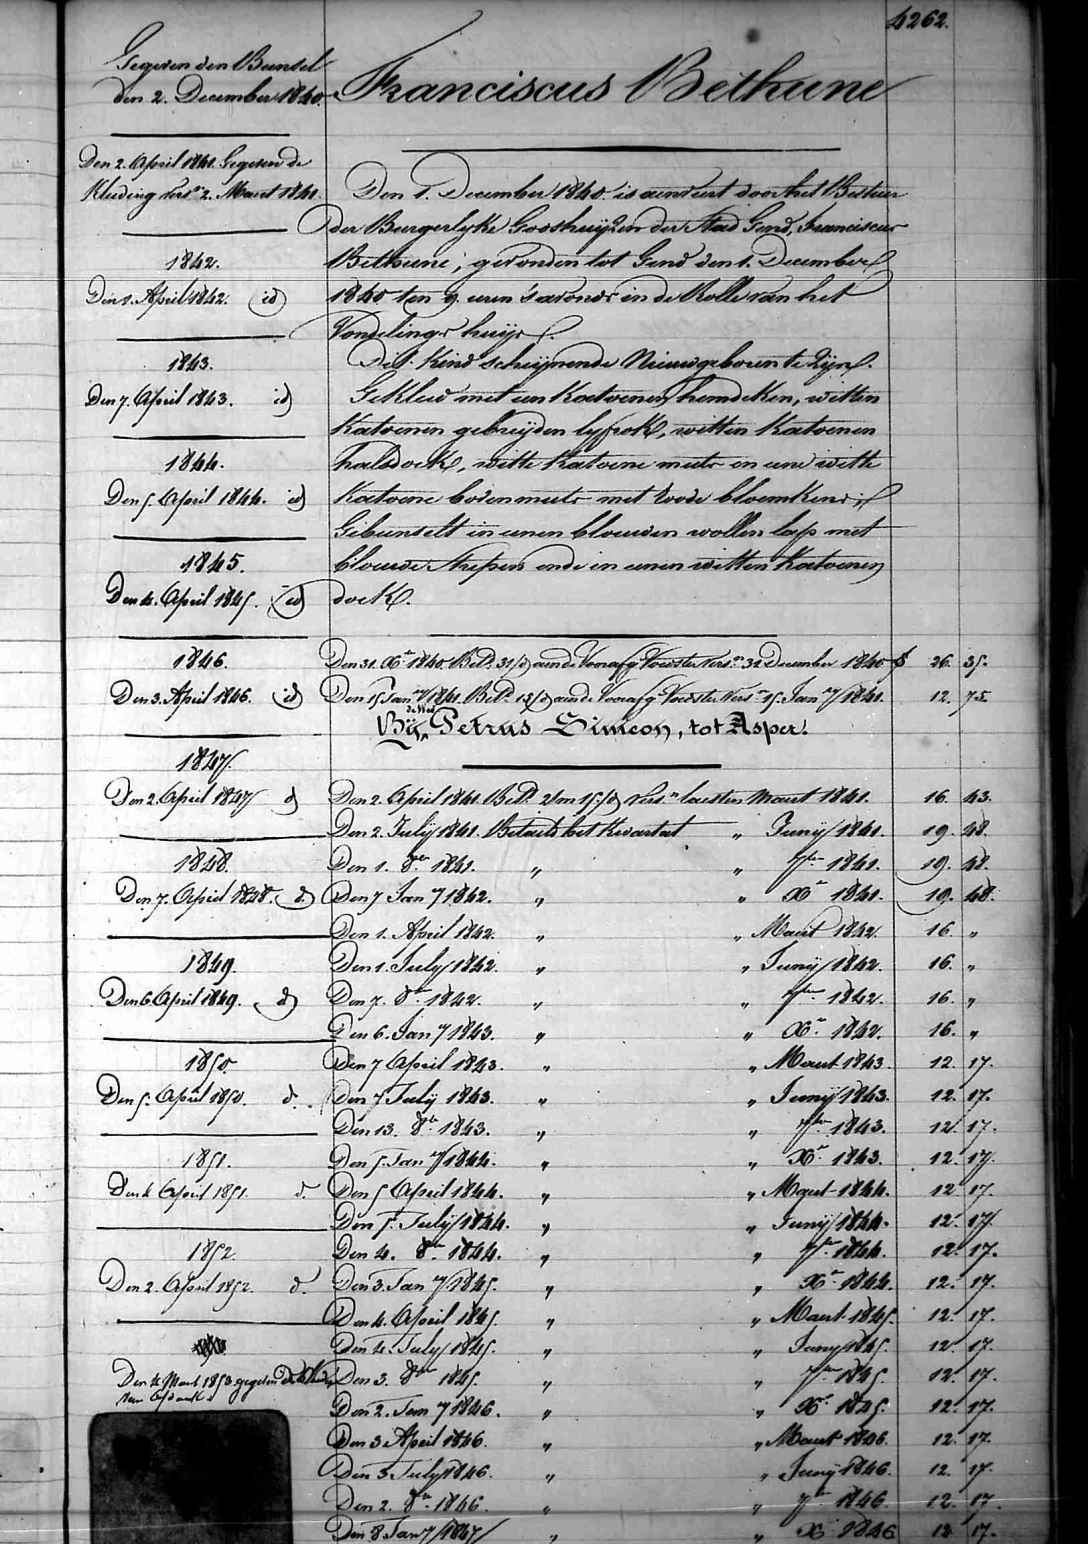 4262.
Gegeven den Bunsel
den 2. December 1840.
Franciscus Bethune
Den 2. April 1841. Gegeven de
Kleeding vers. 2. Maert 1841.
1842.
Den 1. April 1842. id
1843.
Den 7. April 1843. id
1844.
Den 5. April 1844. id
1845.
Den 4. April 1845. id
1846.
Den 3. April 1846. id
1847.
Den 2. April 1847 d
1848.
Den 7. April 1848. d.
1849.
Den 6. April 1849. d
1850.
Den 5. April 1850. d.
1851.
Den 4 April 1851. d.
1852.
Den 2. April 1852. d.
Den 4 Maert 1853 gegeven
Den 1. December 1840. is aenveert door het Bestuer
der Burgerlyke Godshuijzen der Stad Gend, Franciscus
Bethune; gevonden tot Gend den 1. December
1840 ten 9. uren 's avonds in de Rolle van het
Vondelings huijs.
Dit Kind schijnende Nieuwgeboren te Zijn.
Gekleed met een Katoenen hemdeken, witten
Katoenen gebreijden lyfrok, witten Katoenen
halsdoek, witte Katoene muts en eene witte
Katoene bovenmuts met roode bloemkens;
Gebunselt in eenen blauwen wollen lap met
blauwe strepen ende in eenen witten Katoenen
doek.
Den 31. Xr 1840. Betd. 31/d aen de Voorafg. Voedster vers.n 31 December 1840 f 26. 35.
Den 15 Jan.y 1841. Betd. 15/d aen de Voorafg. Voedster vers.n 15. Jan.y 1841. 12. 75.
Bij de Wed. Petrus Simeon, tot Asper.
Den 2. April 1841. Betd. 2/m 15/d vers.n laesten Maert 1841. 16. 43.
Den 2. Julij 1841. Betaelt het Kwartael „ Junij 1841. 19. 48.
Den 1. 8er 1841. „ „ 7ber 1841. 19. 48.
Den 7 Jany 1842. „ „ Xr 1841. 19. 48.
Den 1. April 1842. „ „ Maert 1842. 16. „
Den 1. July 1842. „ „ Junij 1842. 16. „
Den 7. 8r 1842. „ „ 7ber 1842. 16. „
Den 6. Jany 1843. „ „ Xr. 1842. 16. „
Den 7 April 1843. „ „ Maert 1843. 12. 17.
Den 7 July 1843. „ „ Junij 1843. 12. 17.
Den 13. 8r 1843. „ „ 7ber 1843. 12. 17.
Den 5. Jany 1844. „ „ Xr. 1843. 12. 17.
Den 5 April 1844. „ „ Maert 1844. 12 17.
Den 5. July 1844. „ „ Junij 1844. 12. 17.
Den 4. 8r 1844. „ „ 7er 1844. 12. 17.
Den 3. Jany 1845. „ „ Xr. 1844. 12. 17.
Den 4. April 1845. „ „ Maert 1845. 12. 17.
Den 4. July 1845. „ „ Juny 1845. 12. 17.
Den 3. 8er 1845. „ „ 7er 1845. 12. 17.
Den 2. Jany 1846. „ „ Xr. 1845. 12. 17.
Den 3 April 1846. „ „ Maert 1846. 12. 17.
Den 3 July 1846. „ „ Junij 1846. 12. 17.
Den 2. 8er 1846. „ „ 7er 1846. 12. 17.
Den 8 Jany 1847 „ „ Xr 1846 12 17.